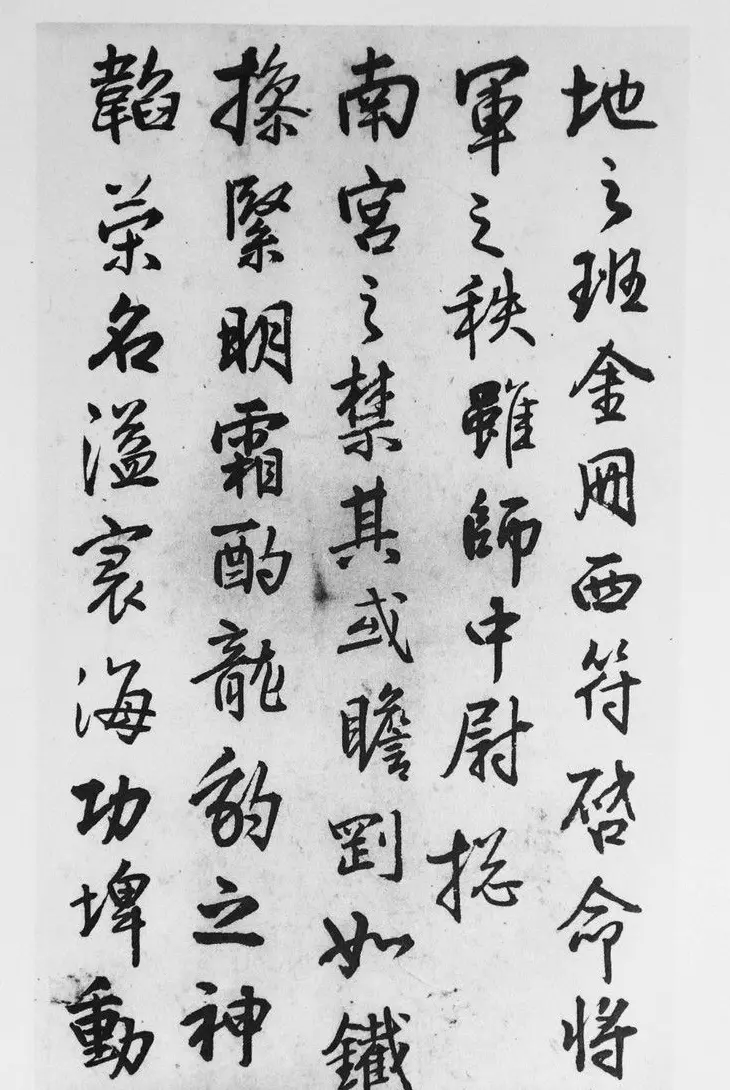 地之班金冊西符啓命将
軍之秩雖師中尉揔
南宮之禁其或瞻罰如鐵
操緊明霜酌龍豹之神
韜荣名溢寰海功埤動